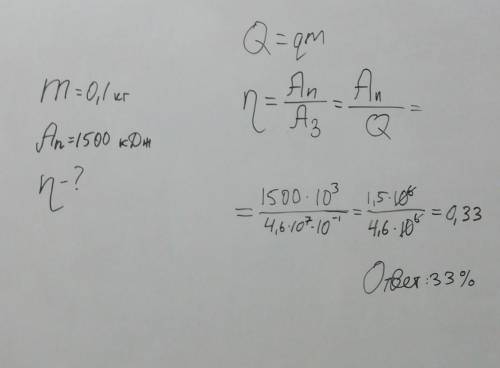 m = 0,1 кг
Aп = 1500 кДж
η - ?
Q = qm
η = Aп / Aз = Aп / Q =
= 1500 · 10³ / 4,6 · 10⁷ · 10⁻¹ = 1,5 · 10⁶ / 4,6 · 10⁶ = 0,33
Ответ: 33%